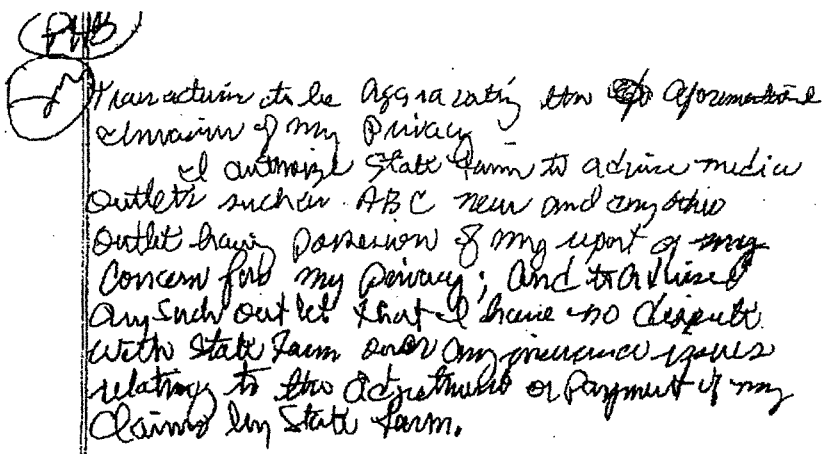 PHB
Transaction to be aggravating the aforementioned
invasion of my privacy
I authorize State Farm to advise media
outlets such as ABC news and any other
outlet having possession of my report of my
concern for my privacy; and to advised
any such outlet that I have no dispute
with State Farm over any insurance issues
relating to the adjustment or payment of my
claims by State Farm.